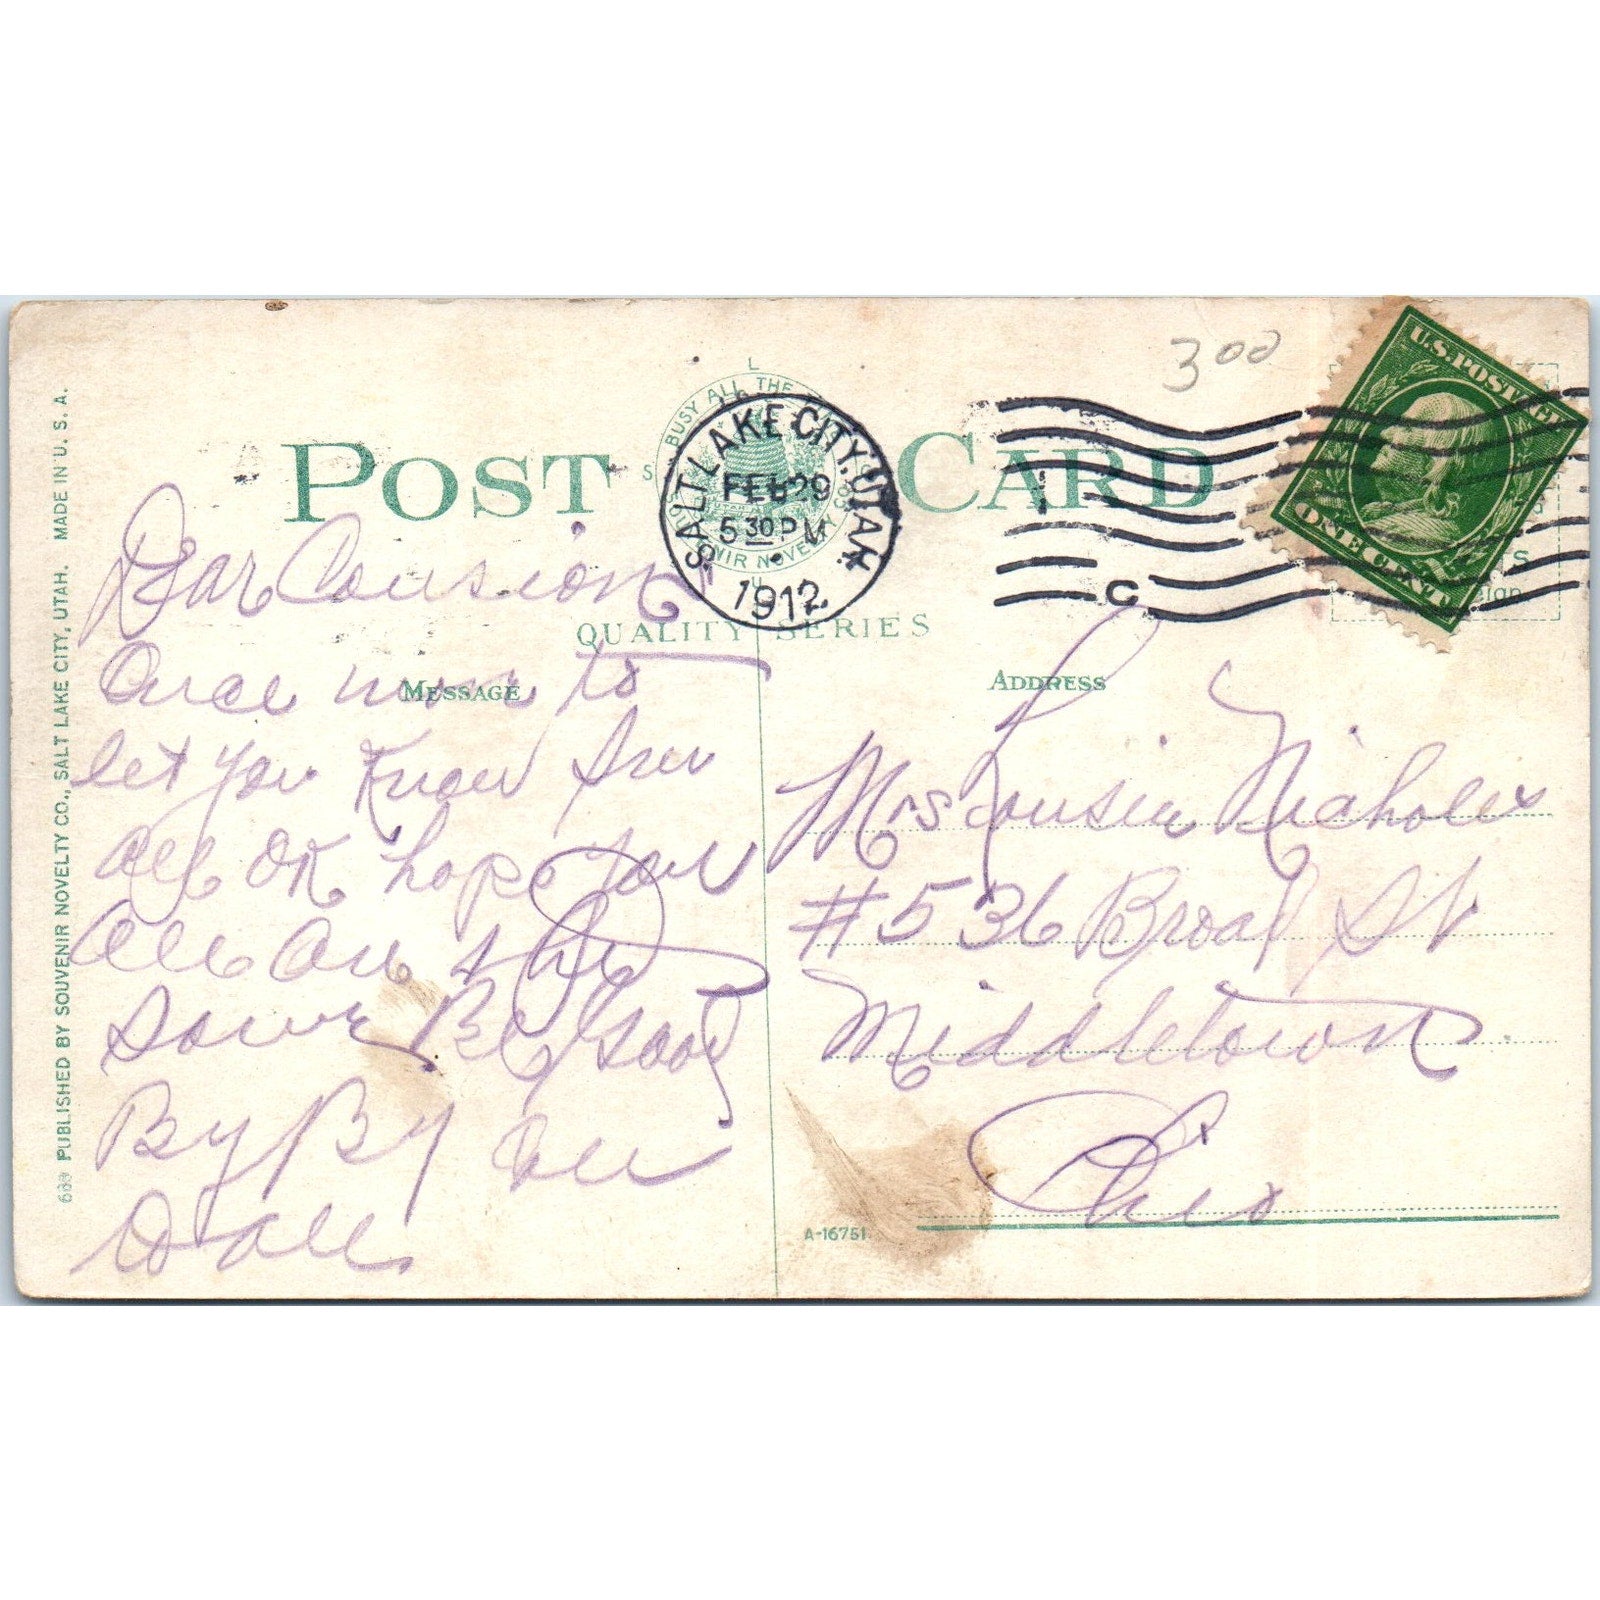 300
POST CARD
BUSY ALL THE
SOUVENIR NOVELTY CO
SALT LAKE CITY, UTAH.
FEB 29
5 30 PM
1912
C
U.S. POSTAGE
ONE CENT
QUALITY SERIES
MESSAGE
ADDRESS
Dear Cousion
Once more to
let you Know I am
all OK hope you
all are the
Same Be good
By By
Mrs Lousier Nicholes
#536 Broad St
Middletown
Ohio
A-16751
PUBLISHED BY SOUVENIR NOVELTY CO., SALT LAKE CITY, UTAH. MADE IN U. S. A.